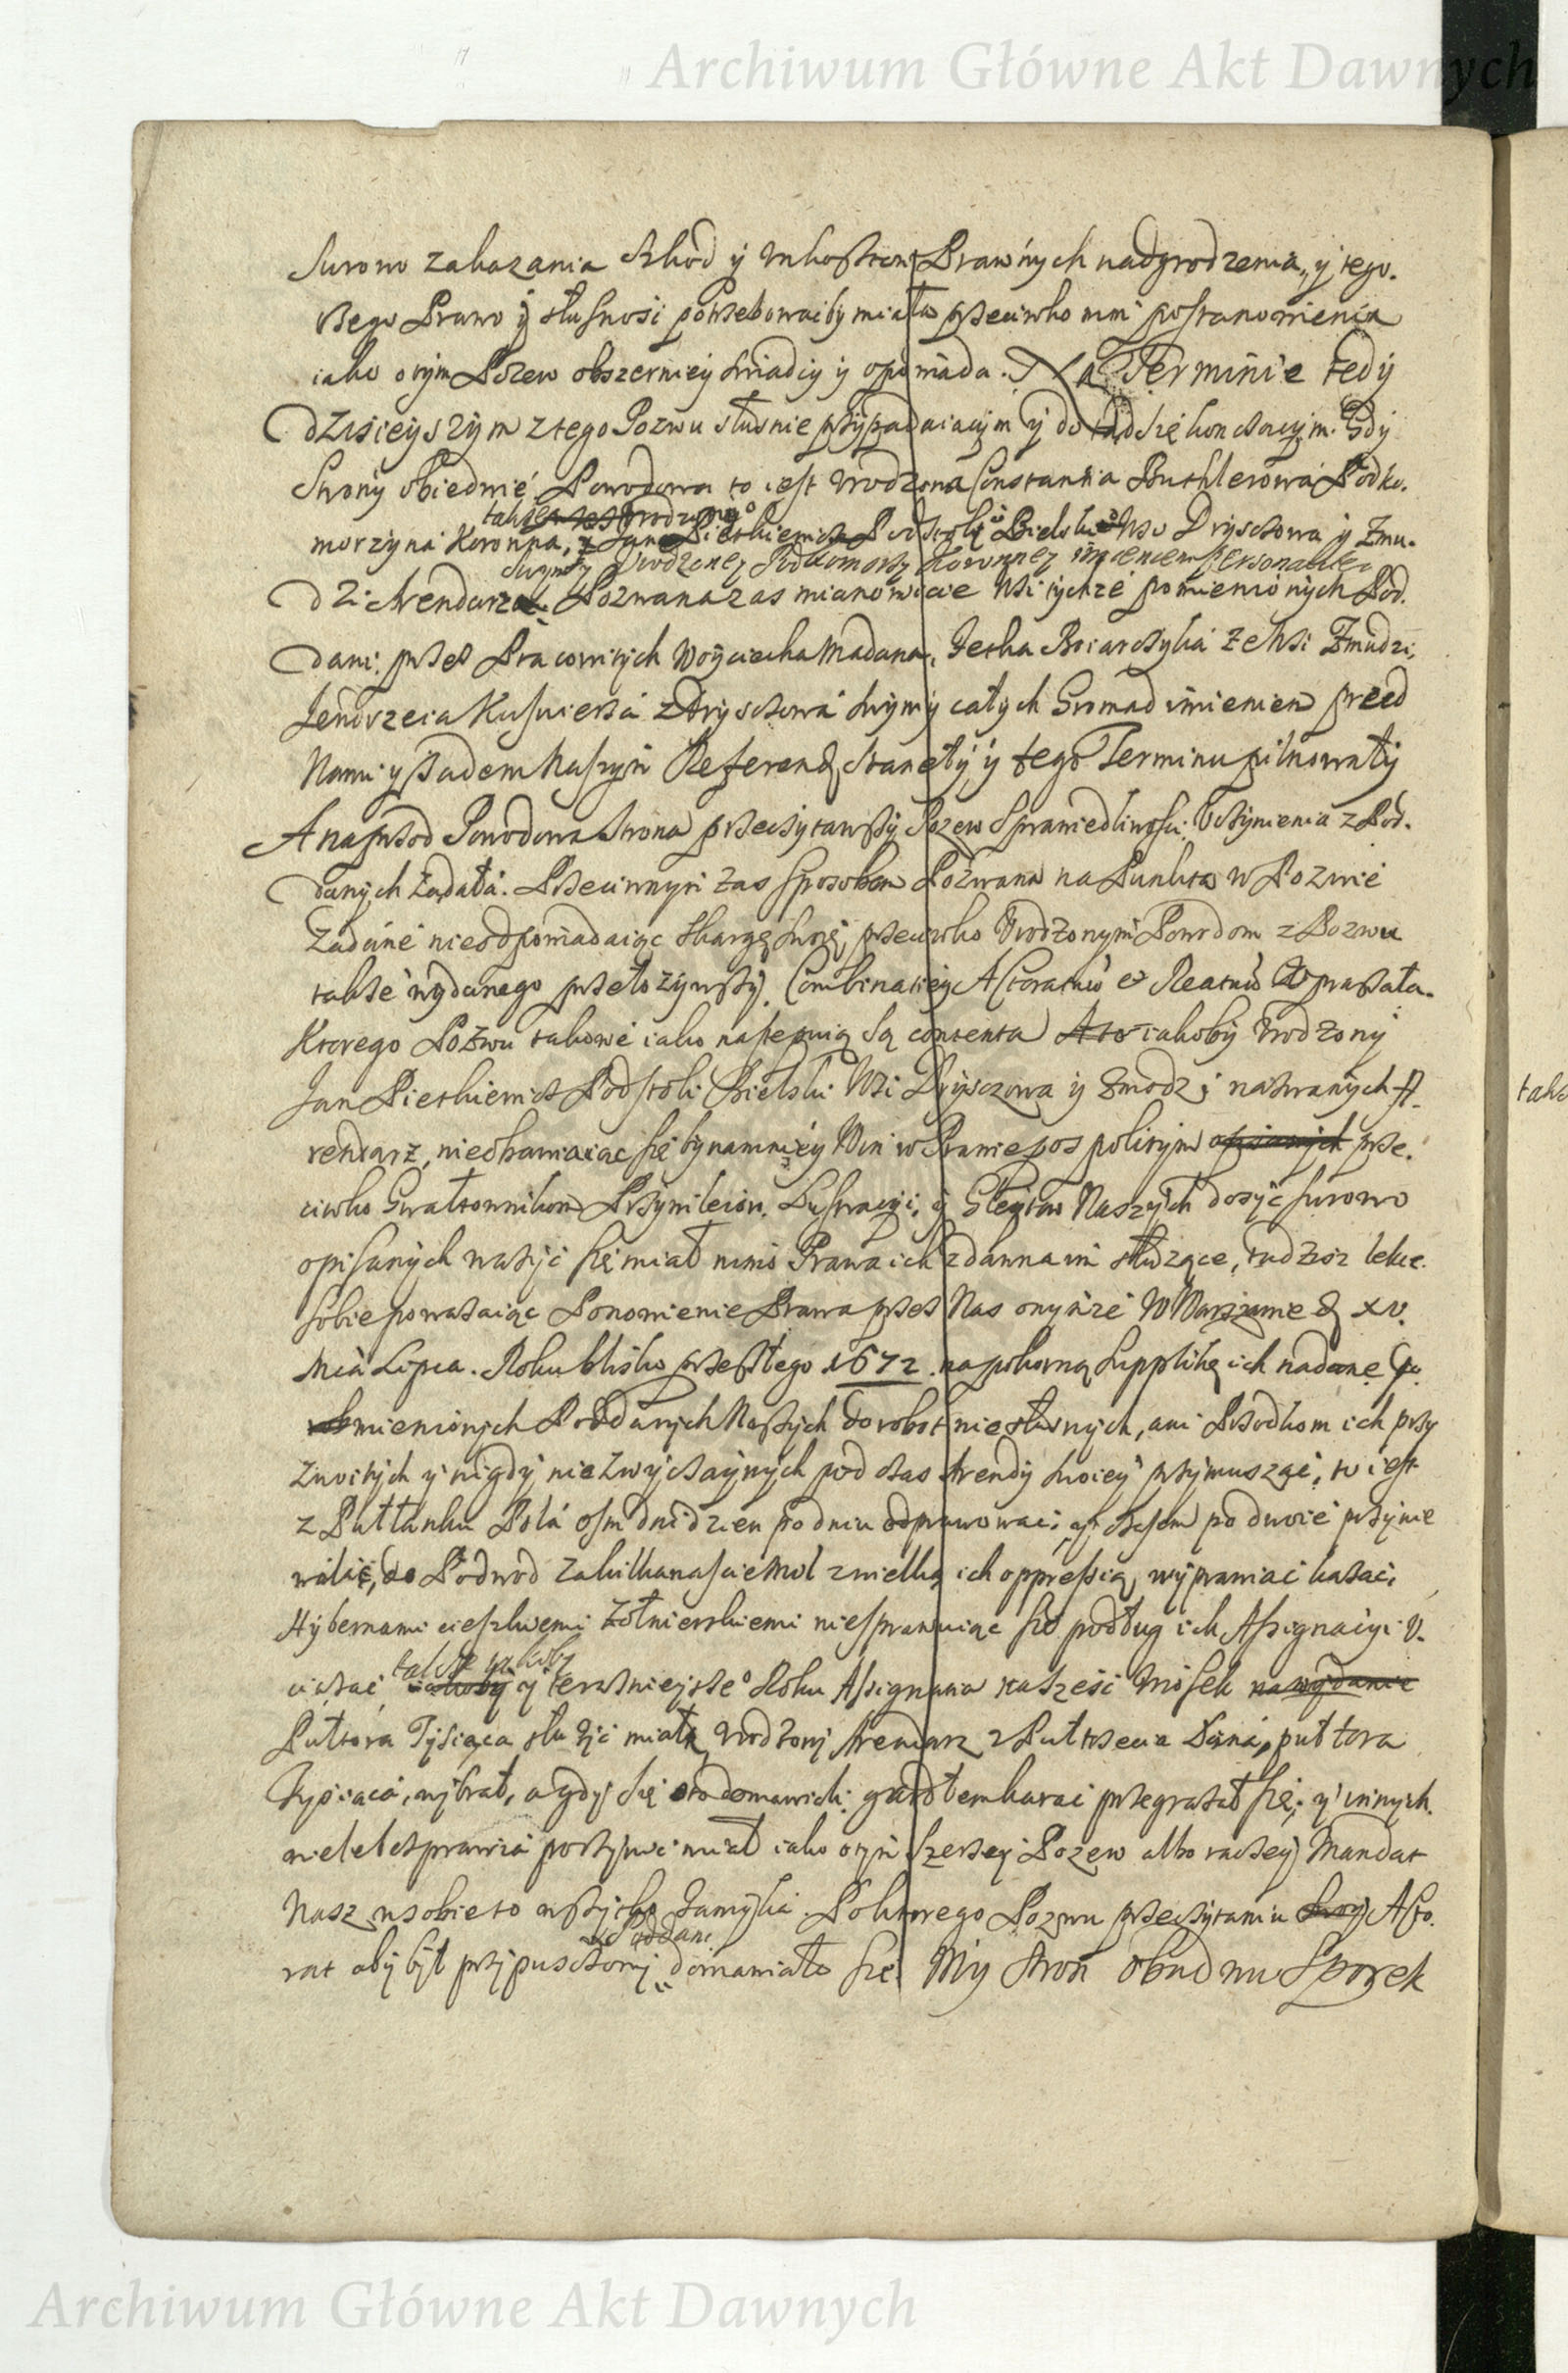 Archiwum Główne Akt Dawnych
Surowo zakazania Szkod y vnkosztow Prawnych nadgrodzenia, y tego.
czego Prawo y słusnosi potrzebowaćby miało przeciwko nim postanowienia
iako o tym Pozew obszerniey swiadczy y opowiada. Na Terminie tedy
dzisieyszym z tego Pozwu słusnie przypadaiącym y do tąd się konczącym. Gdy
Strony obiedwie, Powodowa to iest Vrodzona Constantia Buthlerowa Podko.
także Vrodzonego
morzyna Koronna, y Jan Pietkiewicz Podstoli Bielski Wso Drysczowa y Zmu.
swym y Vrodzoney Podkomorzy Koronney imieniem personaliter
dzi Arendarz. Pozwana zas mianowicie Wsi tychże pomienionych Pod.
dani: przez Pracowitych Woyciecha Madana, Jecka Bojarczyka ze Wsi Zmudzi,
Jendrzeia Kusnierza z Dryszczowa swym y całych Gromad imieniem przed
Nami y Sądem Naszym Referend. stanęły y tego Terminu pilnowały
A naprzod Powodowa strona przeczytawszy Pozew Sprawiedliwosci Vczynienia z Pod.
danych żądała. Przeciwnym zas sposobem Pozwana na Punkta w Pozwie
Zadane nieodpowiadaiąc skargę swoię, przeciwko Vrodzonym Powodom z Pozwu
także wydanego przełożywszy, Combinatiey Actoratus et Reatus vpraszała.
Ktorego Pozwu takowe iako następuią są contenta A to iakoby Vrodzony
Jan Pietkiewicz Podstoli Bielski Wsi Dryszczowa y Zmodzi nazwanych A.
rendarz, nieobawiaiąc się bynamniey Win w Prawie pospolitym opisanych prze.
ciwko Gwałtownikom Przywileiow, Lustracyi, y Gleytow Naszych dosyć surowo
opisanych ważyć się miał mimo Prawa ich z dawna im służące, tudzież lekce.
sobie poważaiąc Ponowienie Prawa przez Nas onymże w Warszawie d. xv.
Mca Lipca. Roku blisko przeszłego 1672. na pokorną Supplikę ich nadane po
mienionych Poddanych Naszych do robot niesłusnych, ani Przodkom ich przy
zwoitych y nigdy niezwyczaynych pod czas Arendy swoiey przymuszać, to iest
z Pułłanku Pola osm dni dzien po dniu odprawować, czasem po dwoie przynie
walać, do Podwod za kilkanascie Mil z wielką ich oppressią, wyprawiać kazać,
Hybernami cięszkiemi Żołnierskiemi niesprawuiąc się podług ich Assignacyi V.
także iakoby
ciążać iakoby y teraznieysze° Roku Assignana na sześć Wiosek na wydanie
Pułtora Tysiąca służyć miała Vrodzony Arendarz pułtora
Tysiąca, wybrał, a gdy się o to domawiali gardłem karać przegrażał się, y innych
wiele bezprawia poczynić miał iako o tym szerzey Pozew albo raczey Mandat
Nasz w sobie to wszytko zamyka. Po ktorego Pozwu przeczytaniu swoy Acto.
Poddani
rat aby był przypuszczony domawiało się. My stron obudwu Sporek
tako
Archiwum Główne Akt Dawnych